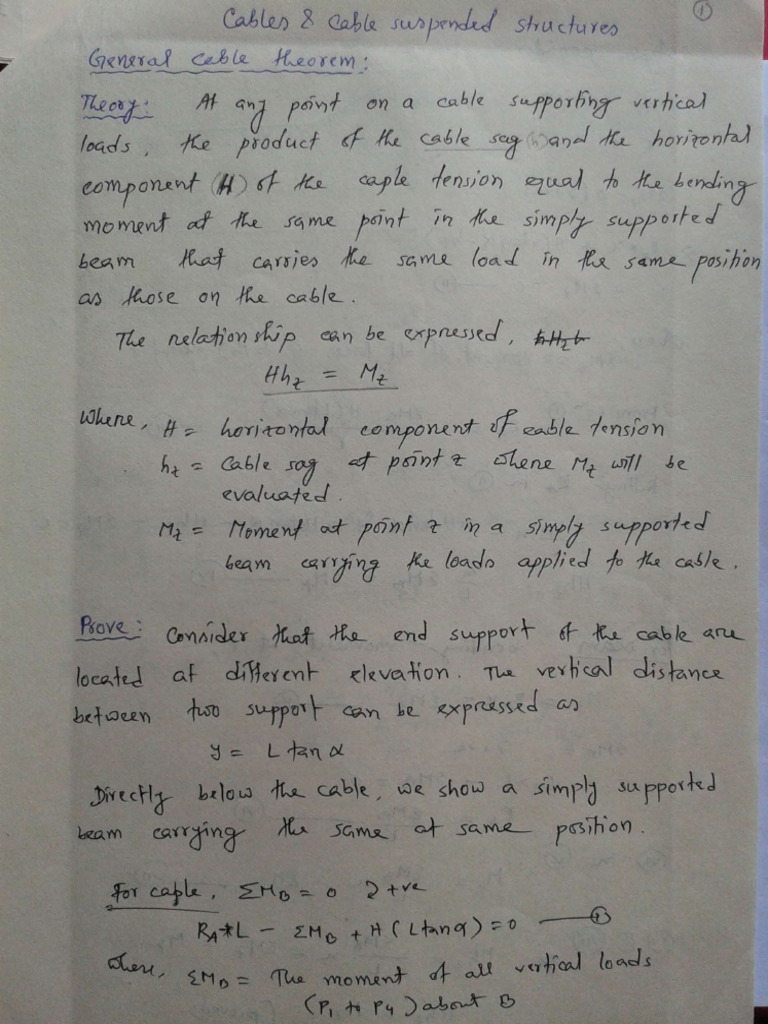 ①
Cables & cable suspended structures
General cable theorem:
Theory: At any point on a cable supporting vertical
loads, the product of the cable sag (h) and the horizontal
component (H) of the caple tension equal to the bending
moment at the same point in the simply supported
beam that carries the same load in the same position
as those on the cable.
The relationship can be expressed,
Hh_z = M_z
Where, H = horizontal component of cable tension
h_z = Cable sag at point z where M_z will be
evaluated.
M_z = Moment at point z in a simply supported
beam carrying the loads applied to the cable.
Prove: Consider that the end support of the cable are
located at different elevation. The vertical distance
between two support can be expressed as
y = L tan α
Directly below the cable, we show a simply supported
beam carrying the same at same position.
For caple, ΣM_B = 0 ↻ +ve
R_A*L - ΣM_B + H (L tan α) = 0 —— ①
Where, ΣM_B = The moment of all vertical loads
(P_1 to P_4) about B